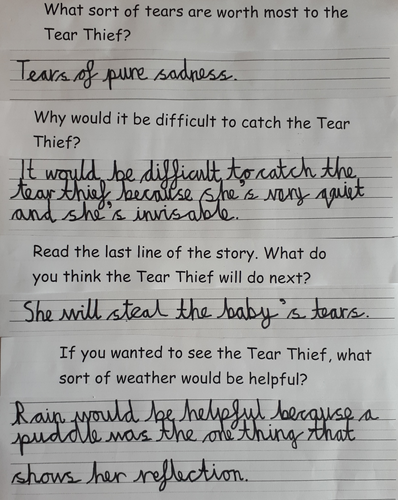 What sort of tears are worth most to the
Tear Thief?
Tears of pure sadness.
Why would it be difficult to catch the Tear
Thief?
It would be difficult to catch the
tear thief, because she's very quiet
and she's invisable.
Read the last line of the story. What do
you think the Tear Thief will do next?
She will steal the baby's tears.
If you wanted to see the Tear Thief, what
sort of weather would be helpful?
Rain would be helpful because a
puddle was the one thing that
shows her reflection.